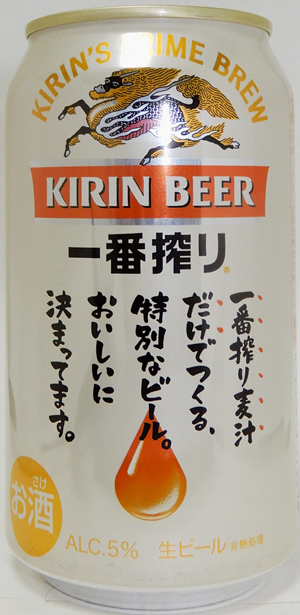 KIRIN'S PRIME BREW
KIRIN BEER
一番搾り®
一番搾り麦汁
だけでつくる、
特別なビール。
おいしいに
決まってます。
さけ
お酒
ALC.5% 生ビール 非熱処理